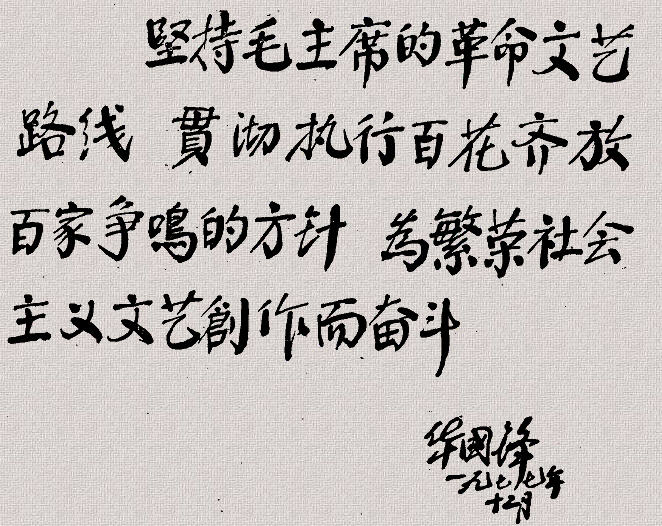 堅持毛主席的革命文艺
路线 貫沏执行百花齐放
百家争鳴的方针 為繁荣社会
主义文艺創作而奋斗
华國锋
一九七七年
十二月